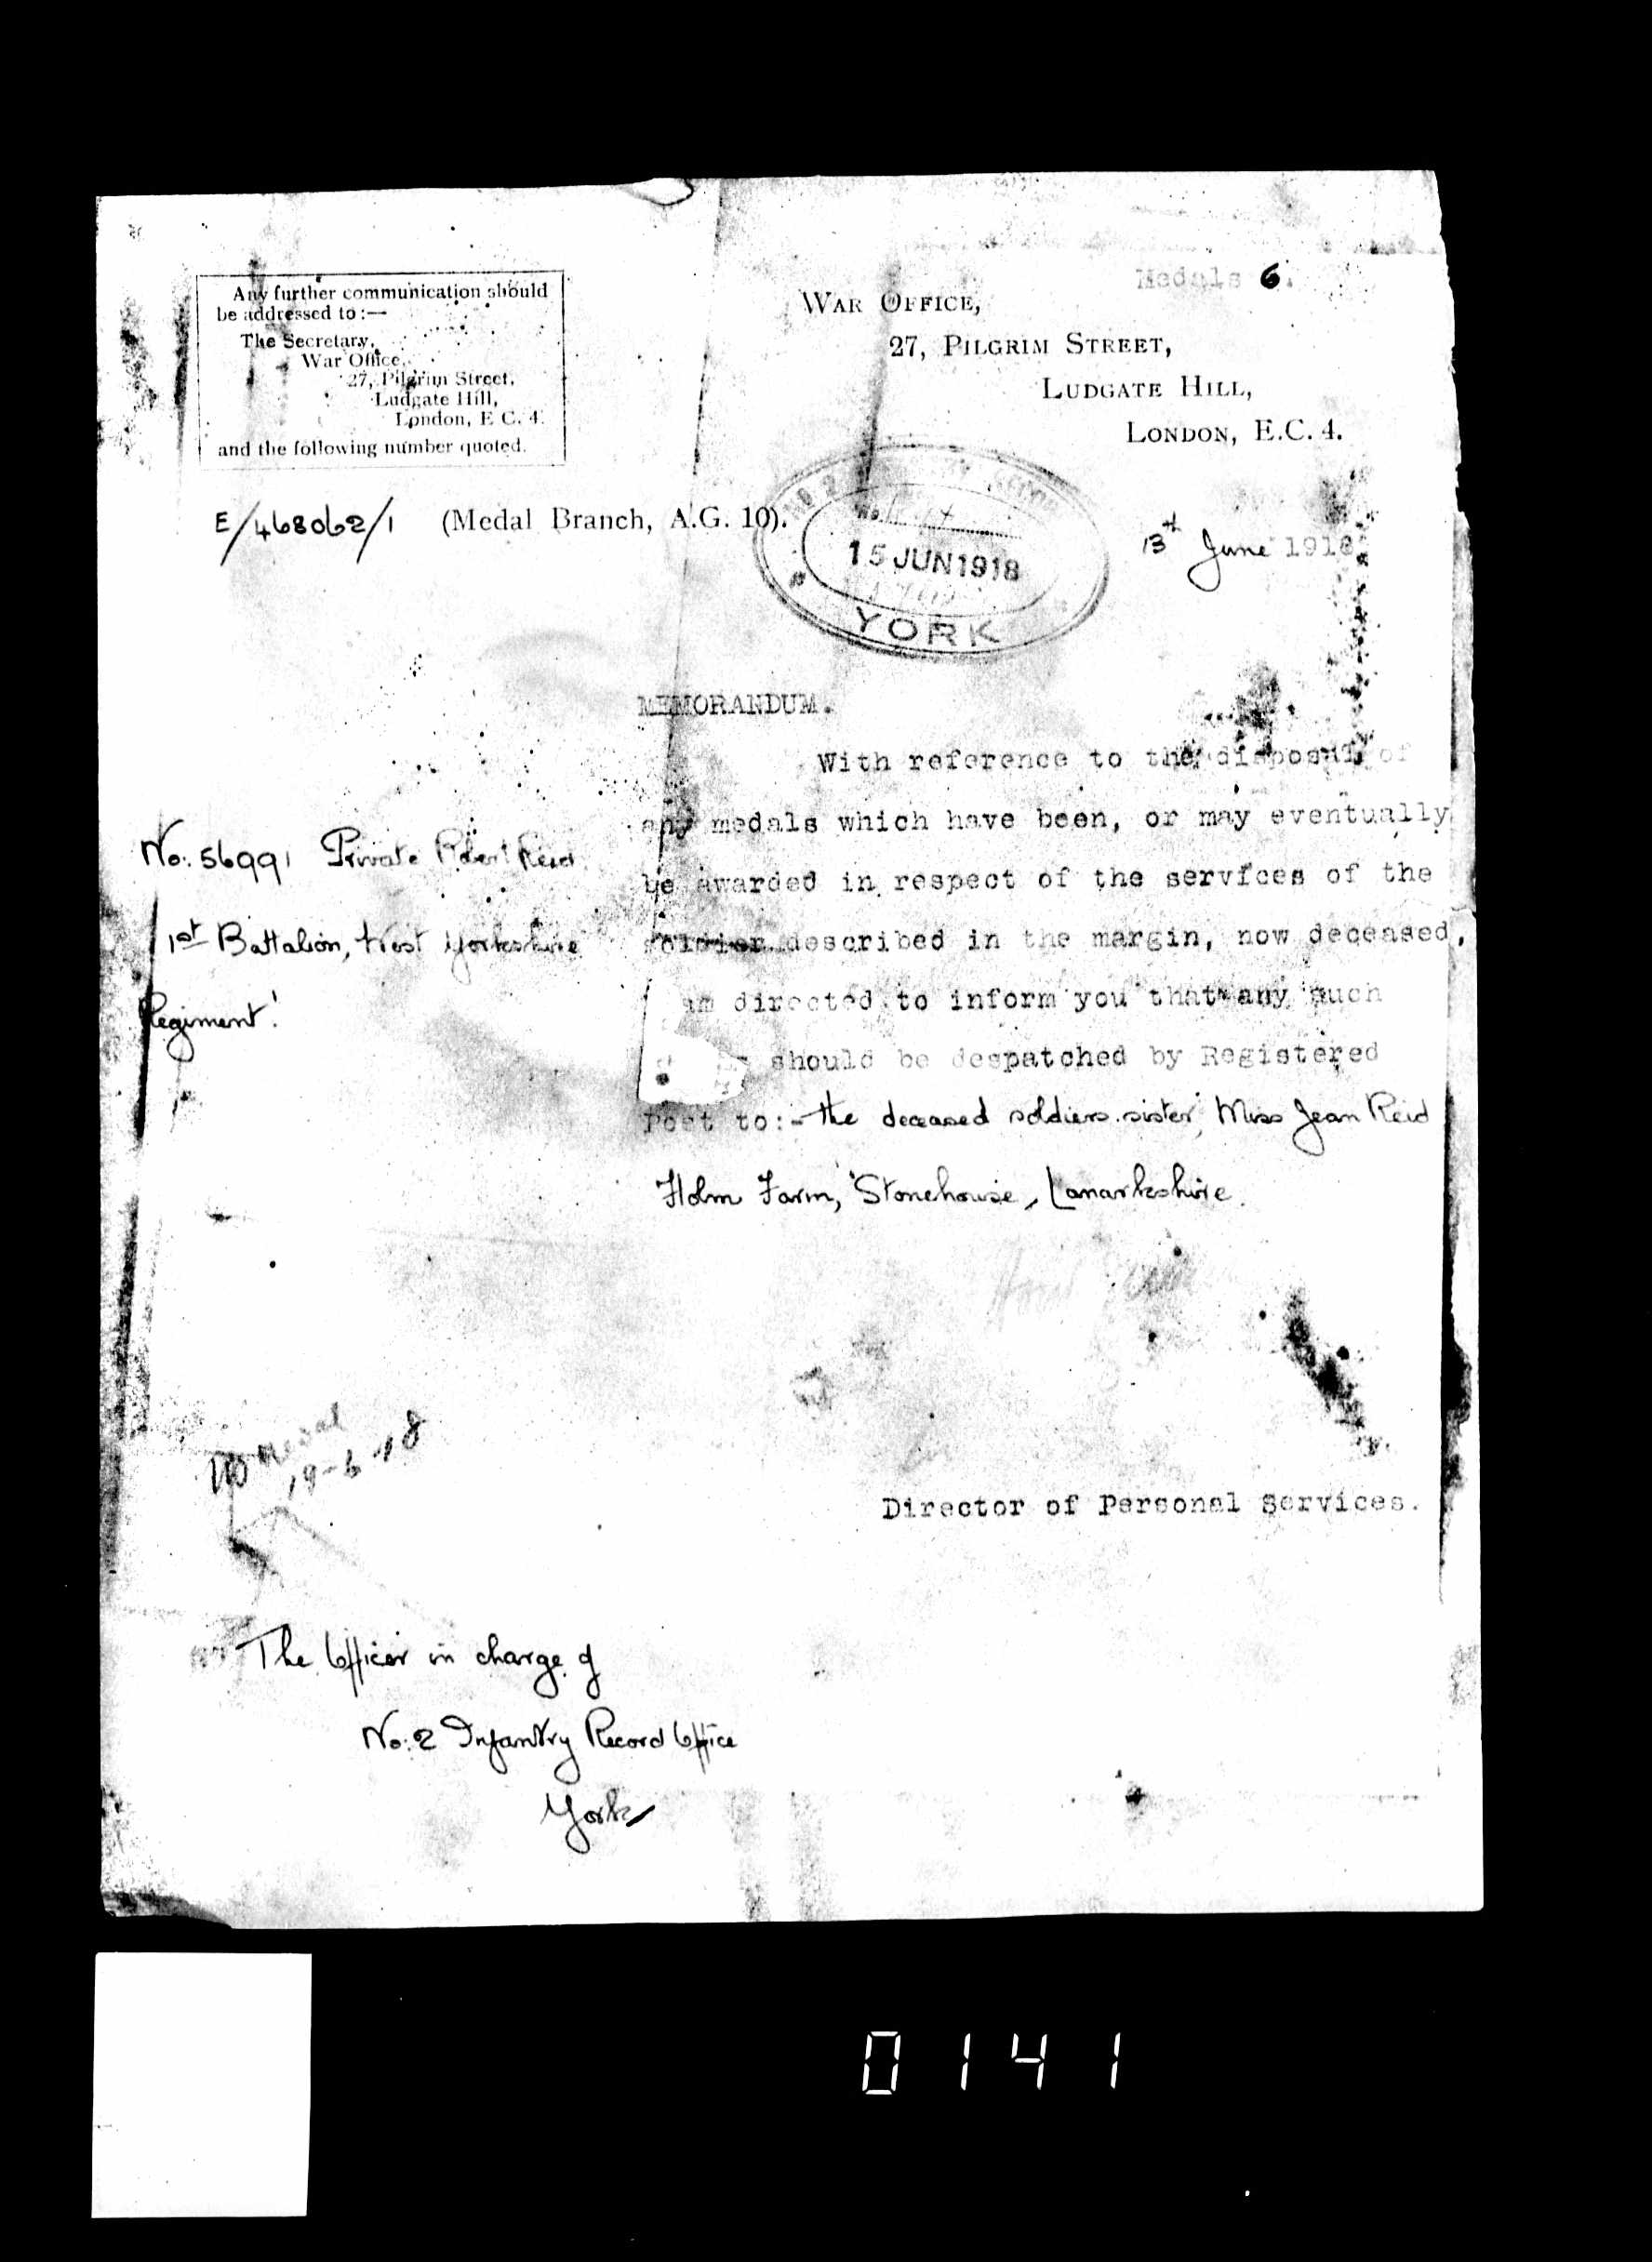 Medals 6.
Any further communication should
be addressed to:—
The Secretary,
War Office,
27, Pilgrim Street,
Ludgate Hill,
London, E.C. 4.
and the following number quoted.
WAR OFFICE,
27, PILGRIM STREET,
LUDGATE HILL,
LONDON, E.C. 4.
E/468062/1 (Medal Branch, A.G. 10).
13th June 1918.
NO 2
15 JUN 1918
YORK
MEMORANDUM.
With reference to the disposal of
any medals which have been, or may eventually
be awarded in respect of the services of the
soldier described in the margin, now deceased,
am directed to inform you that any such
should be despatched by Registered
Post to:- the deceased soldiers sister, Miss Jean Reid
Holm Farm, Stonehouse, Lanarkshire.
No: 56991 Private Robert Reid
1st Battalion, West Yorkshire
Regiment.
No Medal
19-6-18
Director of Personal Services.
The Officer in charge of
No: 2 Infantry Record Office
York
0141